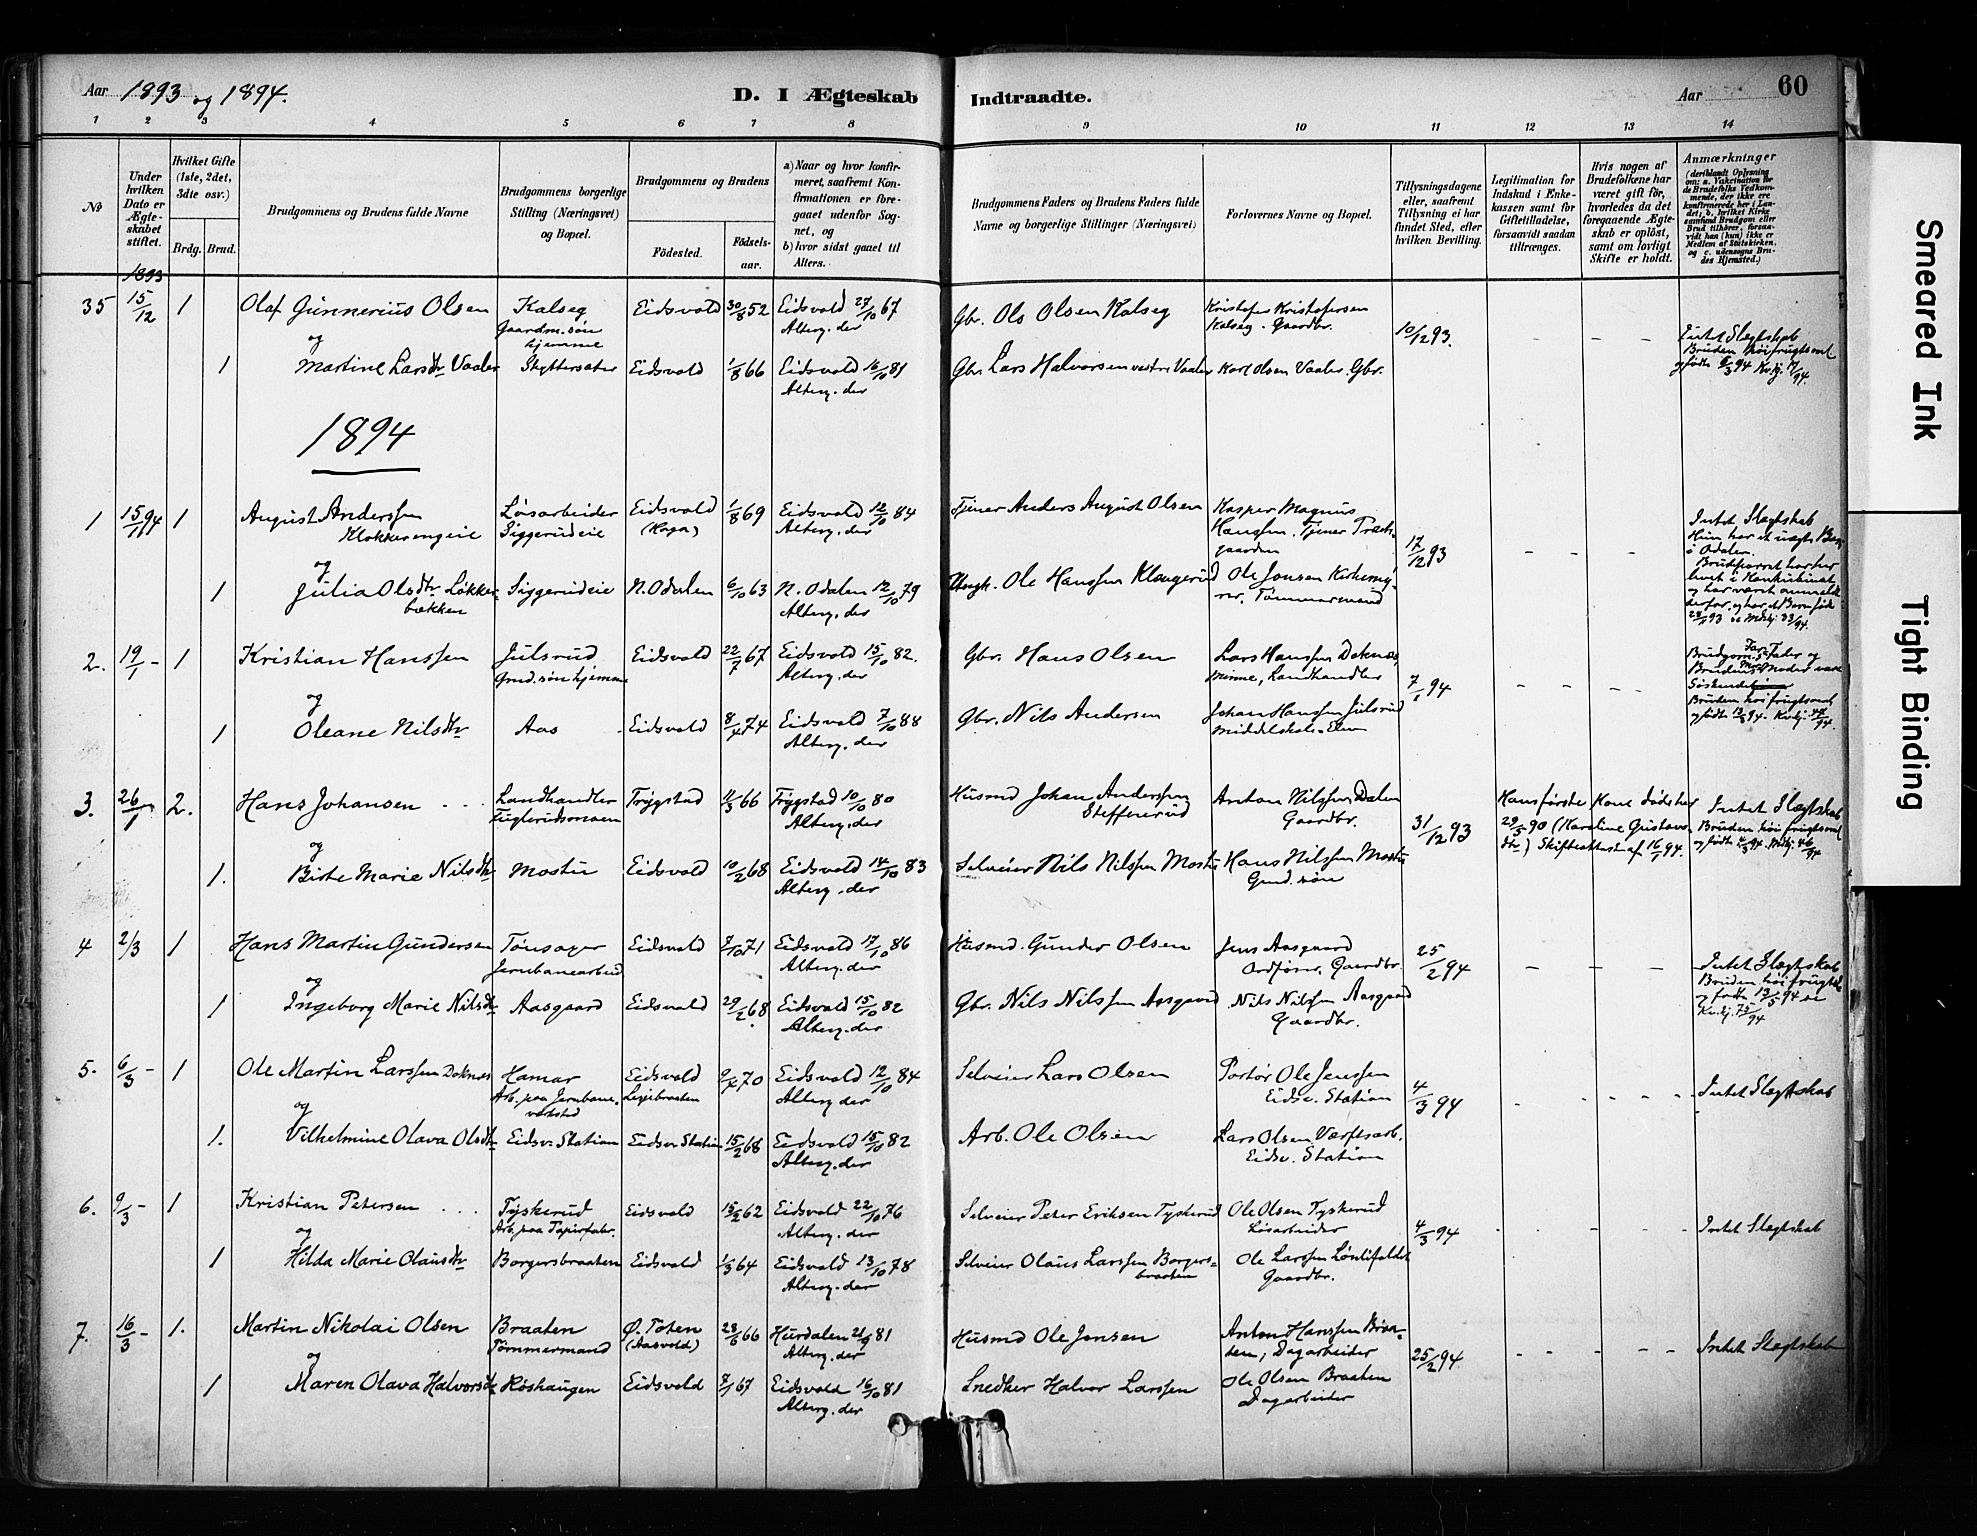 Aar 1893 og 1894.
D. I Ægteskab Indtraadte.
Aar 60
1 2 3 4 5 6 7 8 9 10 11 12 13 14
No
Under hvilken Dato er Ægteskabet stiftet.
Hvilket Gifte (1ste, 2det, 3die osv.)
Brdg. Brud.
Brudgommens og Brudens fulde Navne
Brudgommens borgerlige Stilling (Næringsvei) og Bopæl.
Brudgommens og Brudens
Fødested. Fødselsaar.
a) Naar og hvor konfirmeret, saafremt Konfirmationen er foregaaet udenfor Sognet, og
b) hvor sidst gaaet til Alters.
Brudgommens Faders og Brudens Faders fulde Navne og borgerlige Stillinger (Næringsvei)
Forlovernes Navne og Bopæl.
Tillysningsdagene eller, saafremt Tillysning ei har fundet Sted, efter hvilken Bevilling.
Legitimation for Indskud i Enkekassen samt for Giftetilladelse, forsaavidt saadan tiltrænges.
Hvis nogen af Brudefolkene har været gift før, hvorledes da det foregaaende Ægteskab er opløst, samt om lovligt Skifte er holdt.
Anmærkninger (deriblandt Oplysning om: a. Vakcination for de Brudefolks Vedkommende, der ikke ere konfirmerede her i Landet; b. hvilket Kirkesamfund Brudgom eller Brud tilhører, forsaavidt han (hun) ikke er Medlem af Statskirken, og c. udensogns Brudes Hjemsted.)
1893
35 15/12 1 Olaf Gunnerius Olsen Kalseg Gaardm. søn hjemme Eidsvold 30/8 52 Eidsvold 27/10 67 Alterg. der Gbr. Ols Olsen Kalseg Kristofer Kristofersen Kalseg. Gaardbr. 10/12 93. - - - Intet Slægtskab
og
1 Martine Larsdtr Vaaler Skyttersæter Eidsvold 1/8 66 Eidsvold 16/10 81 Alterg. der Gbr. Lars Halvorsen vestre Vaaler Karl Olsen Vaaler. Gbr. Bruden høifrugtsml
1894
1 15/1 94 1 August Anderssen Klokkerengeie Løsarbeider Siggerudeie Eidsvold (Haga) 1/8 69 Eidsvold 12/10 84 Alterg. der Tjener Anders August Olsen Kasper Magnus Hanssen. Tjener Præstegaarden 17/12 93 - - - Intet Slægtskab Hun har et uægte Barn i Odalen.
og
1 Julia Olsdtr Løkkebakken Siggerudeie N. Odalen 6/10 63 N. Odalen 12/10 79 Alterg. der Ole Hanssen Klævgerud Ole Jonsen Tømmermand Brudparret har før levet i Konkubinat og har været anmeldt derfor, og har et Barn født
2. 19/1 - 1 Kristian Hanssen Julsrud Grd. søn hjemme Eidsvold 22/7 67 Eidsvold 15/10 82. Alterg. der Gbr. Hans Olsen Lars Hanssen Doknæs, Minne, Landhandler 7/1 94 - - - - Brudgoms Farfader og Brudens Mormoder vare Søskende
og
1 Oleane Nilsdtr Aas Eidsvold 8/4 74 Eidsvold 7/10 88 Alterg. der Gbr. Nils Andersen Johan Hanssen Julsrud Middelskole-Elev Bruden høifrugtsml
3. 26/1 - 2. Hans Johansen Landhandler Fuglerudsmoen Trygstad 11/3 66 Trygstad 10/10 80 Alterg. der Husmd Johan Anderssen Steffenrud Anton Nilssen Dalen Gaardbr. 31/12 93 Hans første Kone døde her 29/5 90 (Karoline Gustavsdtr) Skifteattest af 16/1 94. Intet Slægtskab
og
1. Birte Marie Nilsdtr Mostu Eidsvold 10/2 68 Eidsvold 14/10 83 Alterg. der Selveier Nils Nilssen Mostu Hans Nilssen Mostu Grd. søn Bruden høifrugtsml
4 2/3 1 Hans Martin Gundersen Tønsager Jernbanearbeid Eidsvold 7/10 71 Eidsvold 17/10 86 Alterg. der Husmd. Gunder Olsen Jens Aasgaard Ordfører, Gaardbr. 25/2 94 - - - Intet Slægtskab
og
1 Ingeborg Marie Nilsdtr Aasgaard Eidsvold 29/2 68 Eidsvold 15/10 82 Alterg. der Gbr. Nils Nilssen Aasgaard Nils Nilssen Aasgaard Gaardbr. Bruden høifrugtsml
5. 6/3 - 1 Ole Martin Larssen Doknes Hamar Arb. paa Jernbaneverksted Eidsvold 9/4 70 Eidsvold 12/10 84 Alterg. der Selveier Lars Olsen Portør Ole Jenssen Eidsv. Station 4/3 94 - - - - - Intet Slægtskab
og
1. Vilhelmine Olava Olsdtr Eidsv. Station Eidsv. Station 15/2 68 Eidsvold 15/10 82 Alterg. der Arb. Ole Olsen Lars Olsen Værftsarb. Eidsv. Station
6. 9/3 - 1 Kristian Petersen Tyskerud Arb. paa Papirfabr. Eidsvold 15/2 62 Eidsvold 22/10 76 Alterg. der Selveier Peter Eriksen Tyskerud Ole Olsen Tyskerud Løsarbeider 4/3 94 Intet Slægtskab
og
1 Hilda Marie Olausdtr Borgersbraaten Eidsvold 1/3 64 Eidsvold 13/10 78 Alterg. der Selveier Olaus Larssen Borgersbraaten Ole Larssen Gaardbr.
7. 16/3 - 1. Martin Nikolai Olsen Braaten Tømmermand Ø. Toten (Aasvold) 28/6 66 Hurdalen 81 Alterg. der Husmd Ole Jensen Anton Hanssen Braaten, Dagarbeider 25/2 94 - - - - - Intet Slægtskab
og
1 Maren Olava Halvorsdtr Røshaugen Eidsvold 7/1 67 Eidsvold 16/10 81 Alterg. der Snedker Halvor Larssen Ole Olsen Braaten Dagarbeider
Smeared Ink
Tight Binding